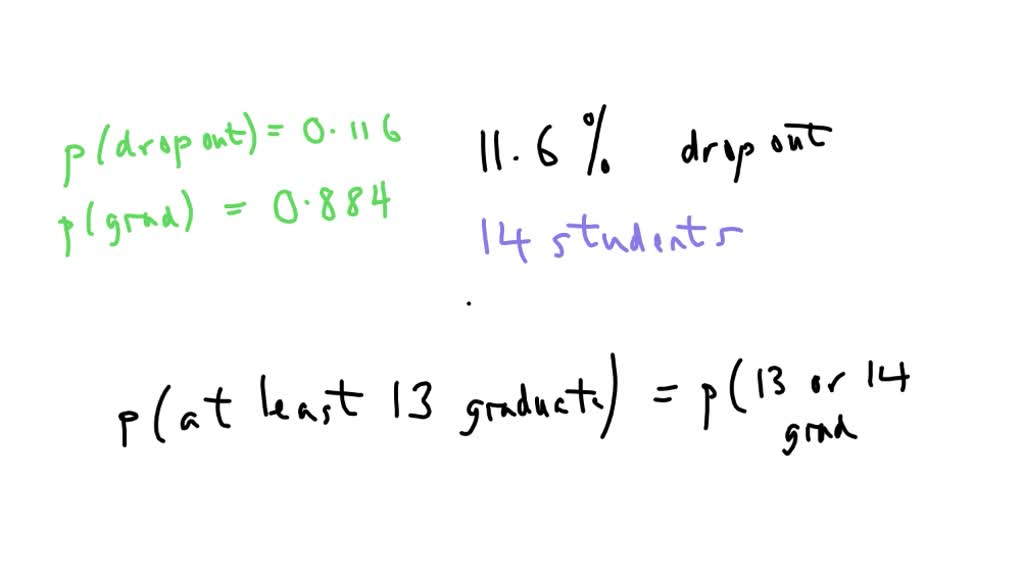 p(drop out) = 0.116
p(grad) = 0.884
11.6% drop out
14 students
p(at least 13 graduate) = p(13 or 14
grad